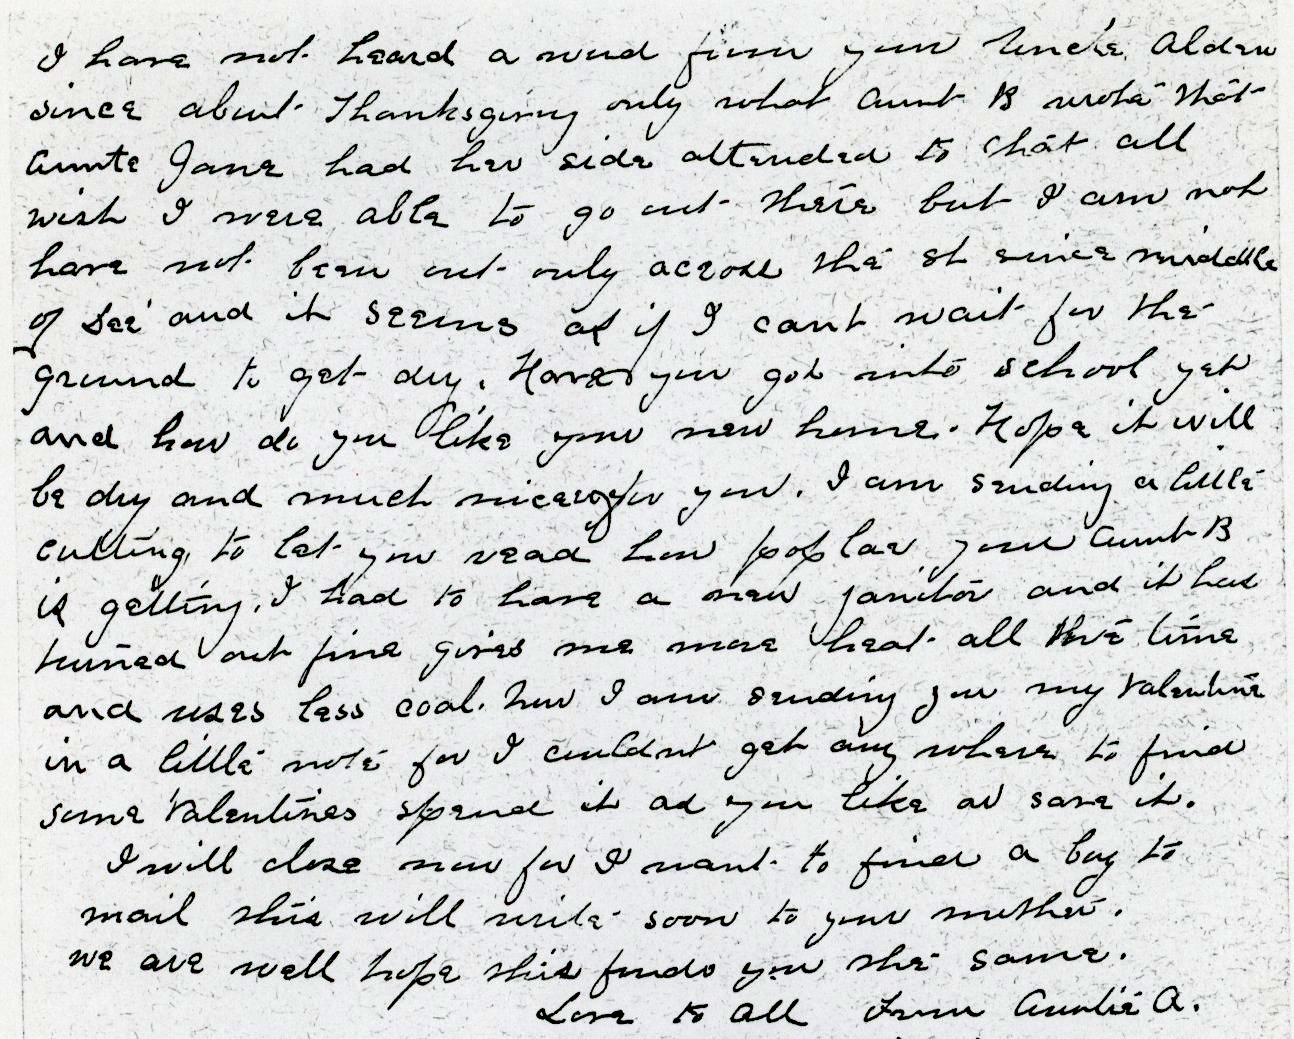 I have not heard a word from your Uncle Alden
since about Thanksgiving only what Aunt B wrote that
Aunte Jane had her side attended to that all
wish I were able to go out there but I am not
have not been out only across the st since middle
of Dec and it seems as if I cant wait for the
ground to get dry. Have you got into school yet
and how do you like your new home. Hope it will
be dry and much nicer for you. I am sending a little
cutting to let you read how poplar your Aunt B
is getting. I had to have a new janitor and it has
turned out fine gives me more heat all the time
and uses less coal. now I am sending you my valentine
in a little note for I couldnt get any where to find
some valentines spend it as you like or save it.
I will close now for I want to find a boy to
mail this will write soon to your mother.
we are well hope this finds you the same.
Love to all From Auntie A.